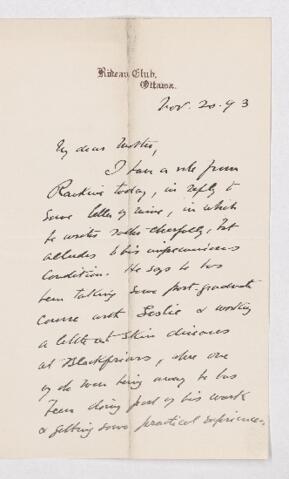 Rideau Club,
Ottawa.
Nov. 20. 93
My dear Mother,
I have a note from
Rankine today, in reply to
some letter of mine, in which
he writes rather cheerfully, but
alludes to his impecunious
condition. He says he has
been taking some post-graduate
course with Leslie & working
a little at skin diseases
at Blackfriars, where one
of the men being away he has
been doing part of his work
& getting some practical experience.